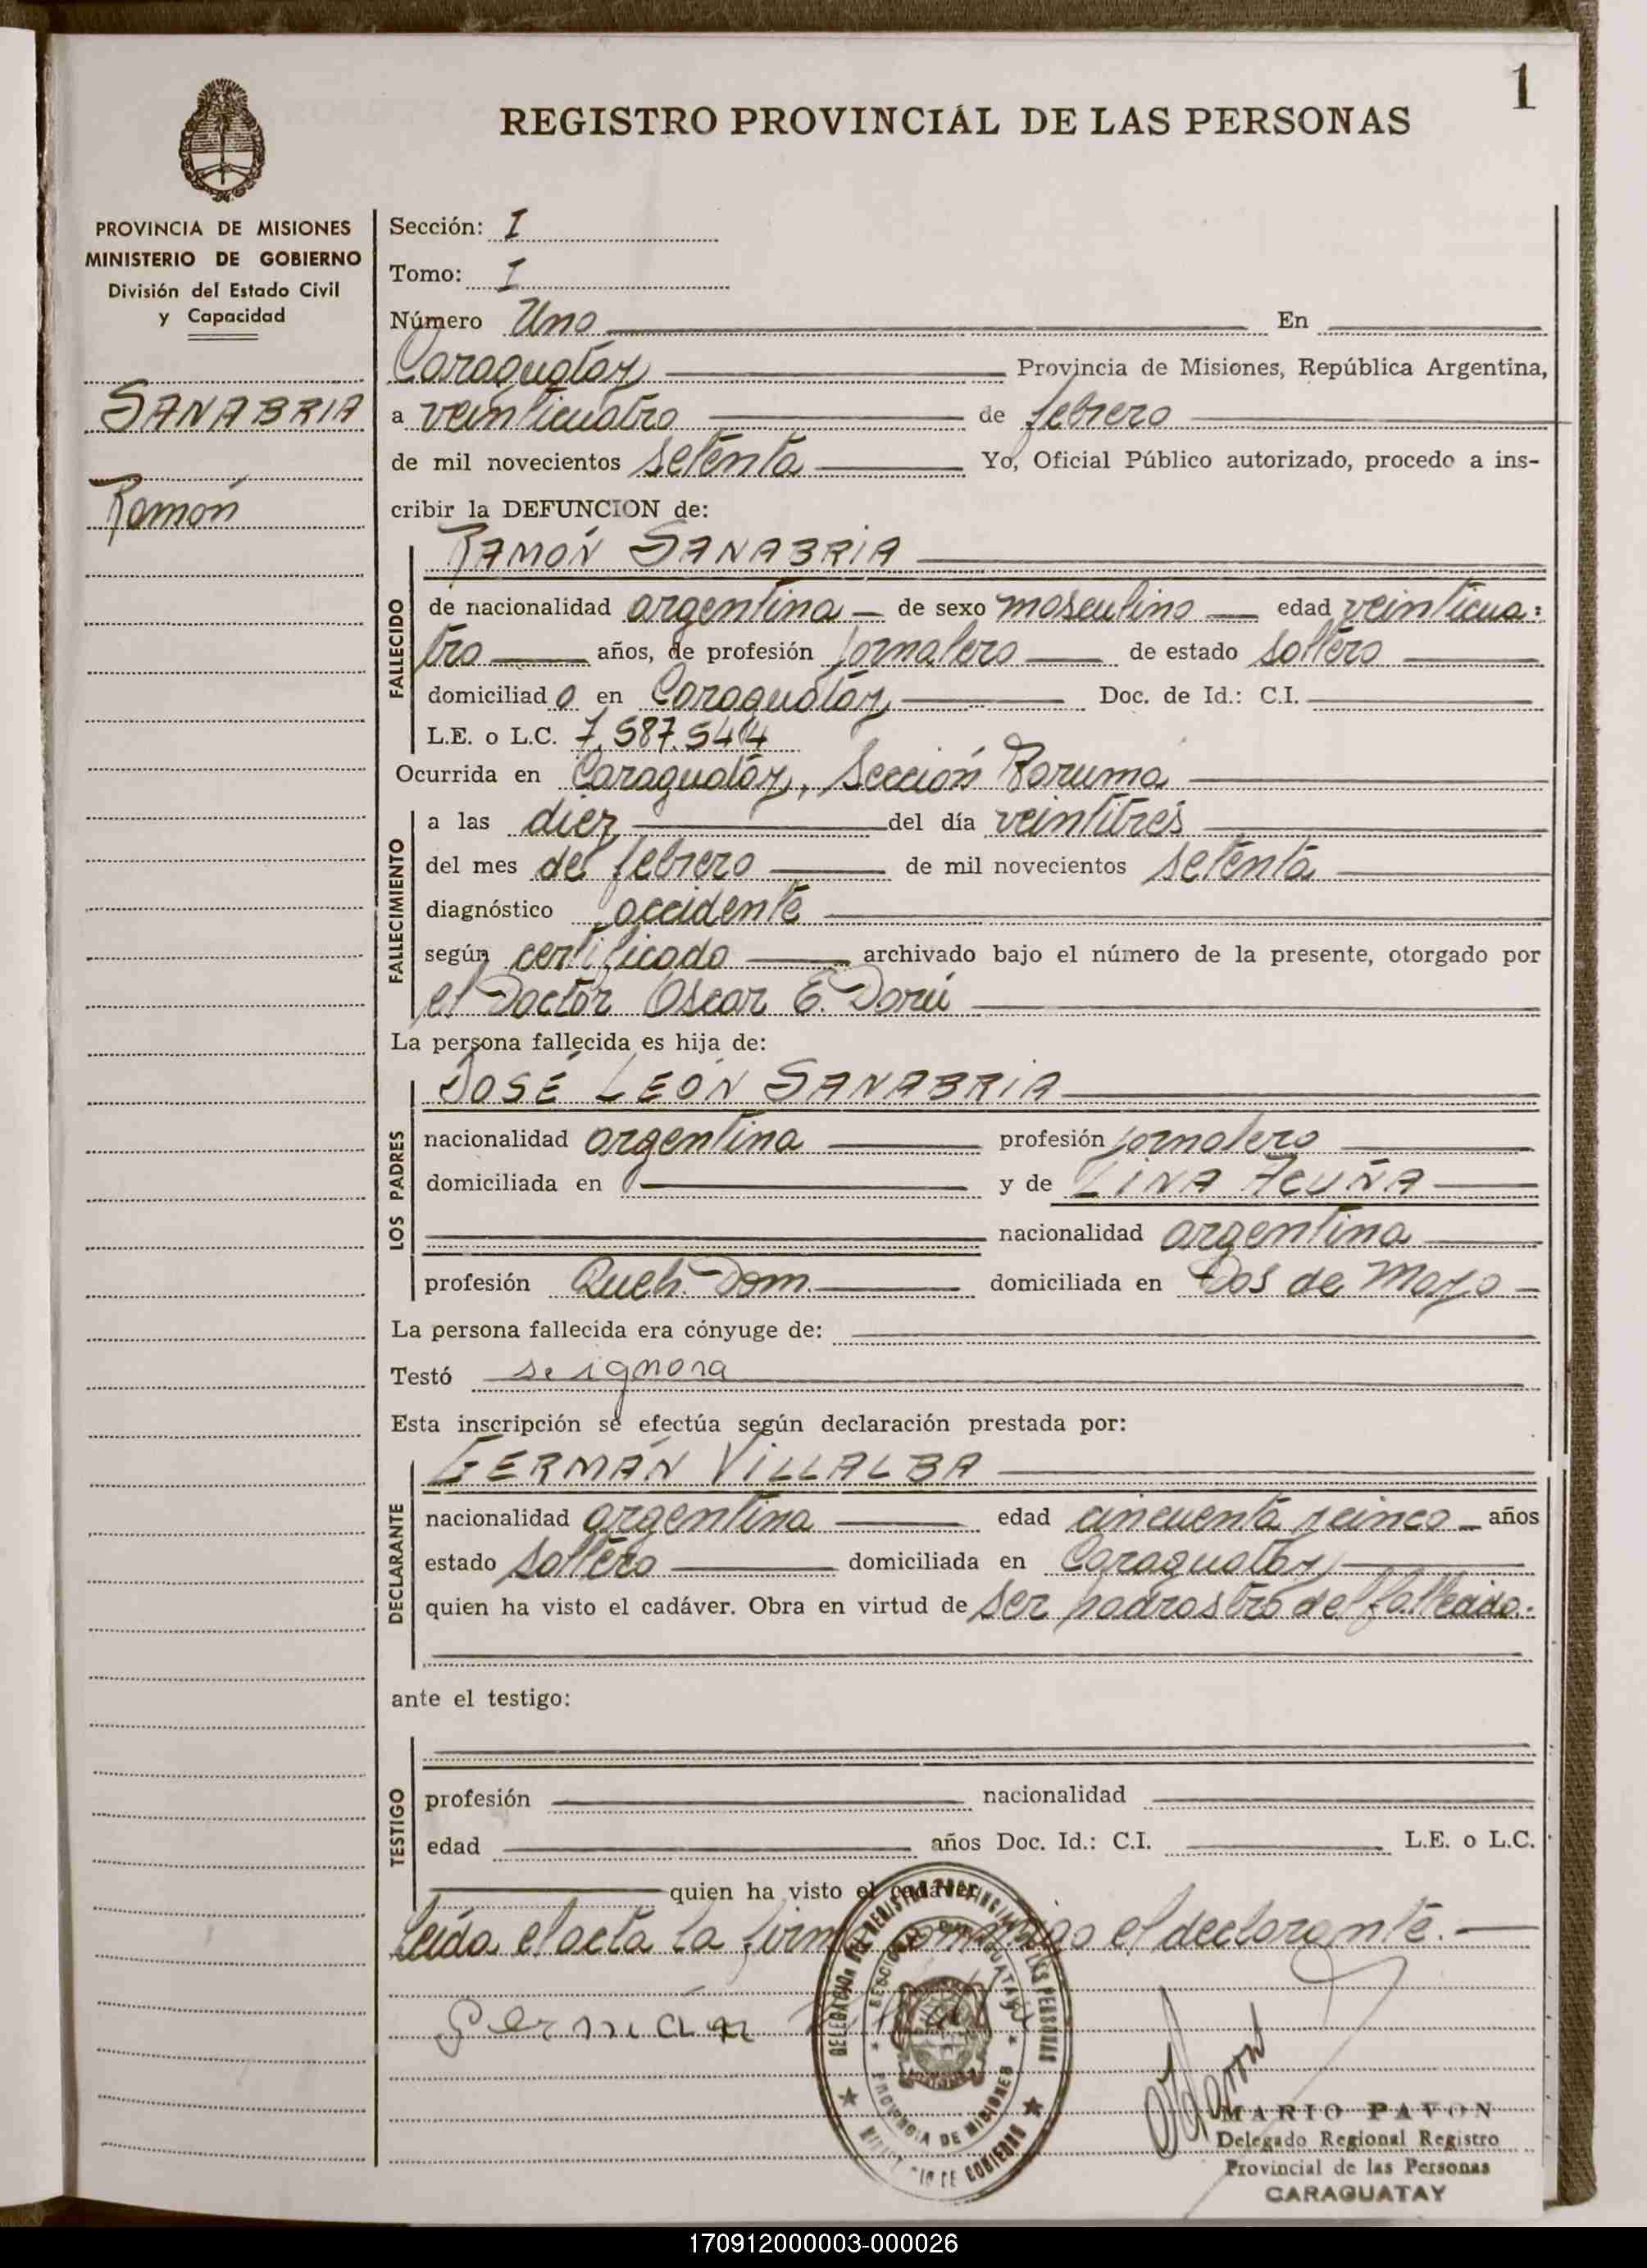 1
REGISTRO PROVINCIAL DE LAS PERSONAS
PROVINCIA DE MISIONES
MINISTERIO DE GOBIERNO
División del Estado Civil
y Capacidad
SANABRIA
Ramón
Sección: I
Tomo: I
Número Uno En
Caraguatay Provincia de Misiones, República Argentina,
a veinticuatro de febrero
de mil novecientos setenta Yo, Oficial Público autorizado, procedo a ins-
cribir la DEFUNCION de:
RAMÓN SANABRIA
FALLECIDO
de nacionalidad argentina de sexo masculino edad veinticua:
tro años, de profesión jornalero de estado soltero
domiciliado en Caraguatay Doc. de Id.: C.I.
L.E. o L.C. 7.587.544
Ocurrida en Caraguatay, Sección Taruma
FALLECIMIENTO
a las diez del día veintitrés
del mes de febrero de mil novecientos setenta
diagnóstico accidente
según certificado archivado bajo el número de la presente, otorgado por
el Doctor Oscar E. Darú
La persona fallecida es hija de:
LOS PADRES
JOSÉ LEÓN SANABRIA
nacionalidad argentina profesión jornalero
domiciliada en y de LINA ACUÑA
nacionalidad argentina
profesión Queh. Dom. domiciliada en Dos de Mayo
La persona fallecida era cónyuge de:
Testó se ignora
Esta inscripción se efectúa según declaración prestada por:
DECLARANTE
GERMÁN VILLALBA
nacionalidad argentina edad cincuenta y cinco años
estado soltero domiciliada en Caraguatay
quien ha visto el cadáver. Obra en virtud de ser padrastro del fallecido.
ante el testigo:
TESTIGO
profesión nacionalidad
edad años Doc. Id.: C.I. L.E. o L.C.
quien ha visto el cadáver
Leída el acta la firma conmigo el declarante.
Germán
DELEGACION DEL REGISTRO PROVINCIAL DE LAS PERSONAS
SECCIONAL CARAGUATAY
PROVINCIA DE MISIONES
MINISTERIO DE GOBIERNO
MARIO PAVON
Delegado Regional Registro
Provincial de las Personas
CARAGUATAY
170912000003-000026